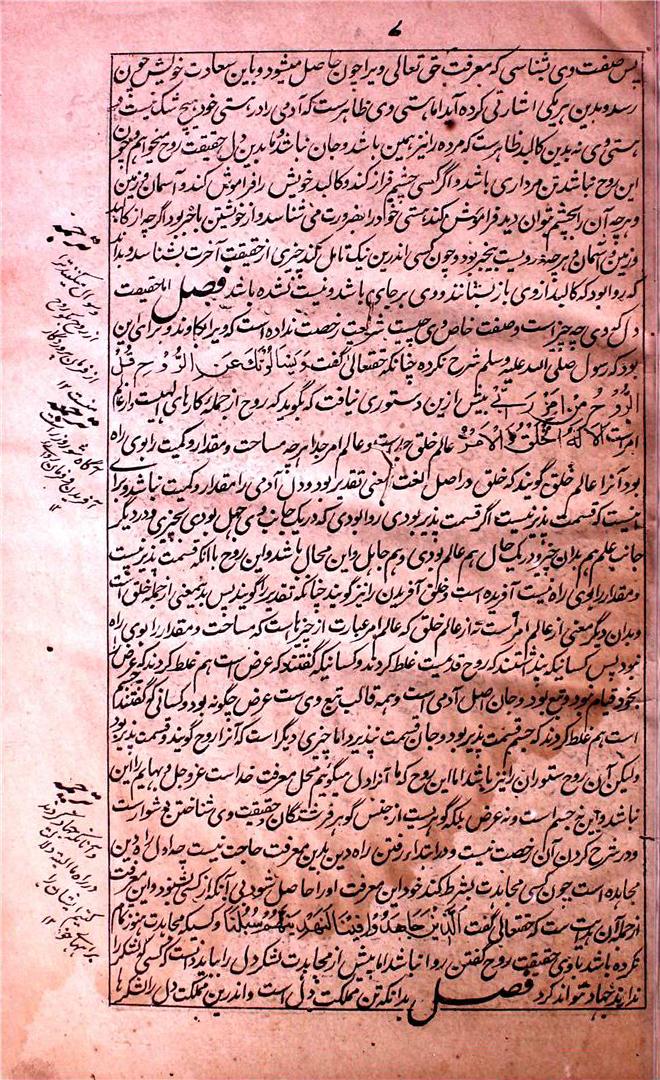 ۷
پس صفت وی بشناسی که معرفت حق تعالی ویرا چون حاصل میشود و باین سعادت خویش چون
رسد و بدین هر یکی اشارتی کرده آید اما هستی وی ظاهرست که آدمی را در هستی خود هیچ شک نیست و
هستی وی نه بدین کالبد ظاهرست که مرده را نیز همین باشد و جان نباشد و ما بدین دل حقیقت روح میخواهیم و چون
این روح نباشد تن مرداری باشد و اگر کسی چشم فراز کند و کالبد خویش را فراموش کند و آسمان و زمین
و هرچه آن را بچشم توان دید فراموش کند هستی خود را بضرورت می شناسد و از خویشتن باخبر بود اگرچه از کالبد
و زمین و آسمان و هرچه دروست بیخبر بود و چون کسی اندرین نیک تامل کند چیزی از حقیقت آخرت بشناسد و بداند
که روا بود که کالبد از وی باز ستانند و وی برجای باشد و نیست نشده باشد فصل اما حقیقت
دل که وی چه چیز است و صفت خاص وی چیست شریعت رخصت نداده است که ویرا بکاوند و برای این
بود که رسول صلی الله علیه وسلم شرح نکرده چنانکه حقتعالی گفت وَیَسْأَلُونَکَ عَنِ الرُّوْحِ قُلِ
الرُّوْحُ مِنْ اَمْرِ رَبِّیْ بیش ازین دستوری نیافت که گوید که روح از جمله کارهای الهیت و از عالم
امرست اَلَا لَهُ الْخَلْقُ وَ الْاَمْرُ عالم خلق جداست و عالم امر جدا هرچه مساحت و مقدار و کمیت را بوی راه
بود آنرا عالم خلق گویند که خلق در اصل لغت بمعنی تقدیر بود و دل آدمی را مقدار و کمیت نباشد و برای
اینست که قسمت پذیر نیست اگر قسمت پذیر بودی روا بودی که در یک جانب وی جهل بودی بچیزی و در دیگر
جانب علم هم بدان چیز و در یک حال هم عالم بودی و هم جاهل و این محال باشد و این روح با آنکه قسمت پذیر نیست
و مقدار را بوی راه نیست آفریده است و خلق آفریدن را نیز گویند چنانکه تقدیر را گویند پس بدین معنی از جمله خلق است
و بدان دیگر معنی از عالم امرست نه از عالم خلق که عالم امر عبارت از چیزهاست که مساحت و مقدار را بوی راه
نبود پس کسانیکه پنداشتند که روح قدیمست غلط کردند و کسانیکه گفتند که عرض است هم غلط کردند که عرض را
بخود قیام نبود و تبع بود و جان اصل آدمی است و همه قالب تبع وی است عرض چگونه بود و کسانی که گفتند که جسم
است هم غلط کردند که جسم قسمت پذیر بود و جان قسمت نپذیرد اما چیزی دیگر است که آنرا روح گویند و قسمت پذیر بود
ولیکن آن روح ستوران را نیز باشد اما این روح که ما آنرا دل میگوییم محل معرفت خداست عزوجل و بهایم را این
نباشد و این نه جسم است و نه عرض بلکه گوهریست از جنس گوهر فرشتگان و حقیقت وی شناختن دشوار است
و در شرح کردن آن رخصت نیست و در ابتدا رفتن راه دین بدین معرفت حاجت نیست چه اول راه دین
مجاهده است چون کسی مجاهدت بشرط کند خود این معرفت او را حاصل شود بی آنکه از کسی بشنود و این معرفت
از جمله آن هدایتست که حقتعالی گفت اَلَّذِیْنَ جَاهَدُوْا فِیْنَا لَنَهْدِیَنَّهُمْ سُبُلَنَا و کسیکه مجاهدت هنوز تمام
نکرده باشد با وی حقیقت روح گفتن روا نباشد اما پیش از مجاهدت لشکر دل را بباید دانست که کسی که لشکر را
نداند جهاد نتواند کرد فصل بدانکه تن مملکت دل است و اندرین مملکت دل را لشکرها
ترجمه
و سوال میکنند ترا
از روح بگو روح
از فرمان پروردگار
منست ۱۲
ترجمه
آگاه شو
آفریدن و فرمان
۱۲
ترجمه
و آنانکه جهاد کردند
در راه ما البته
۱۲